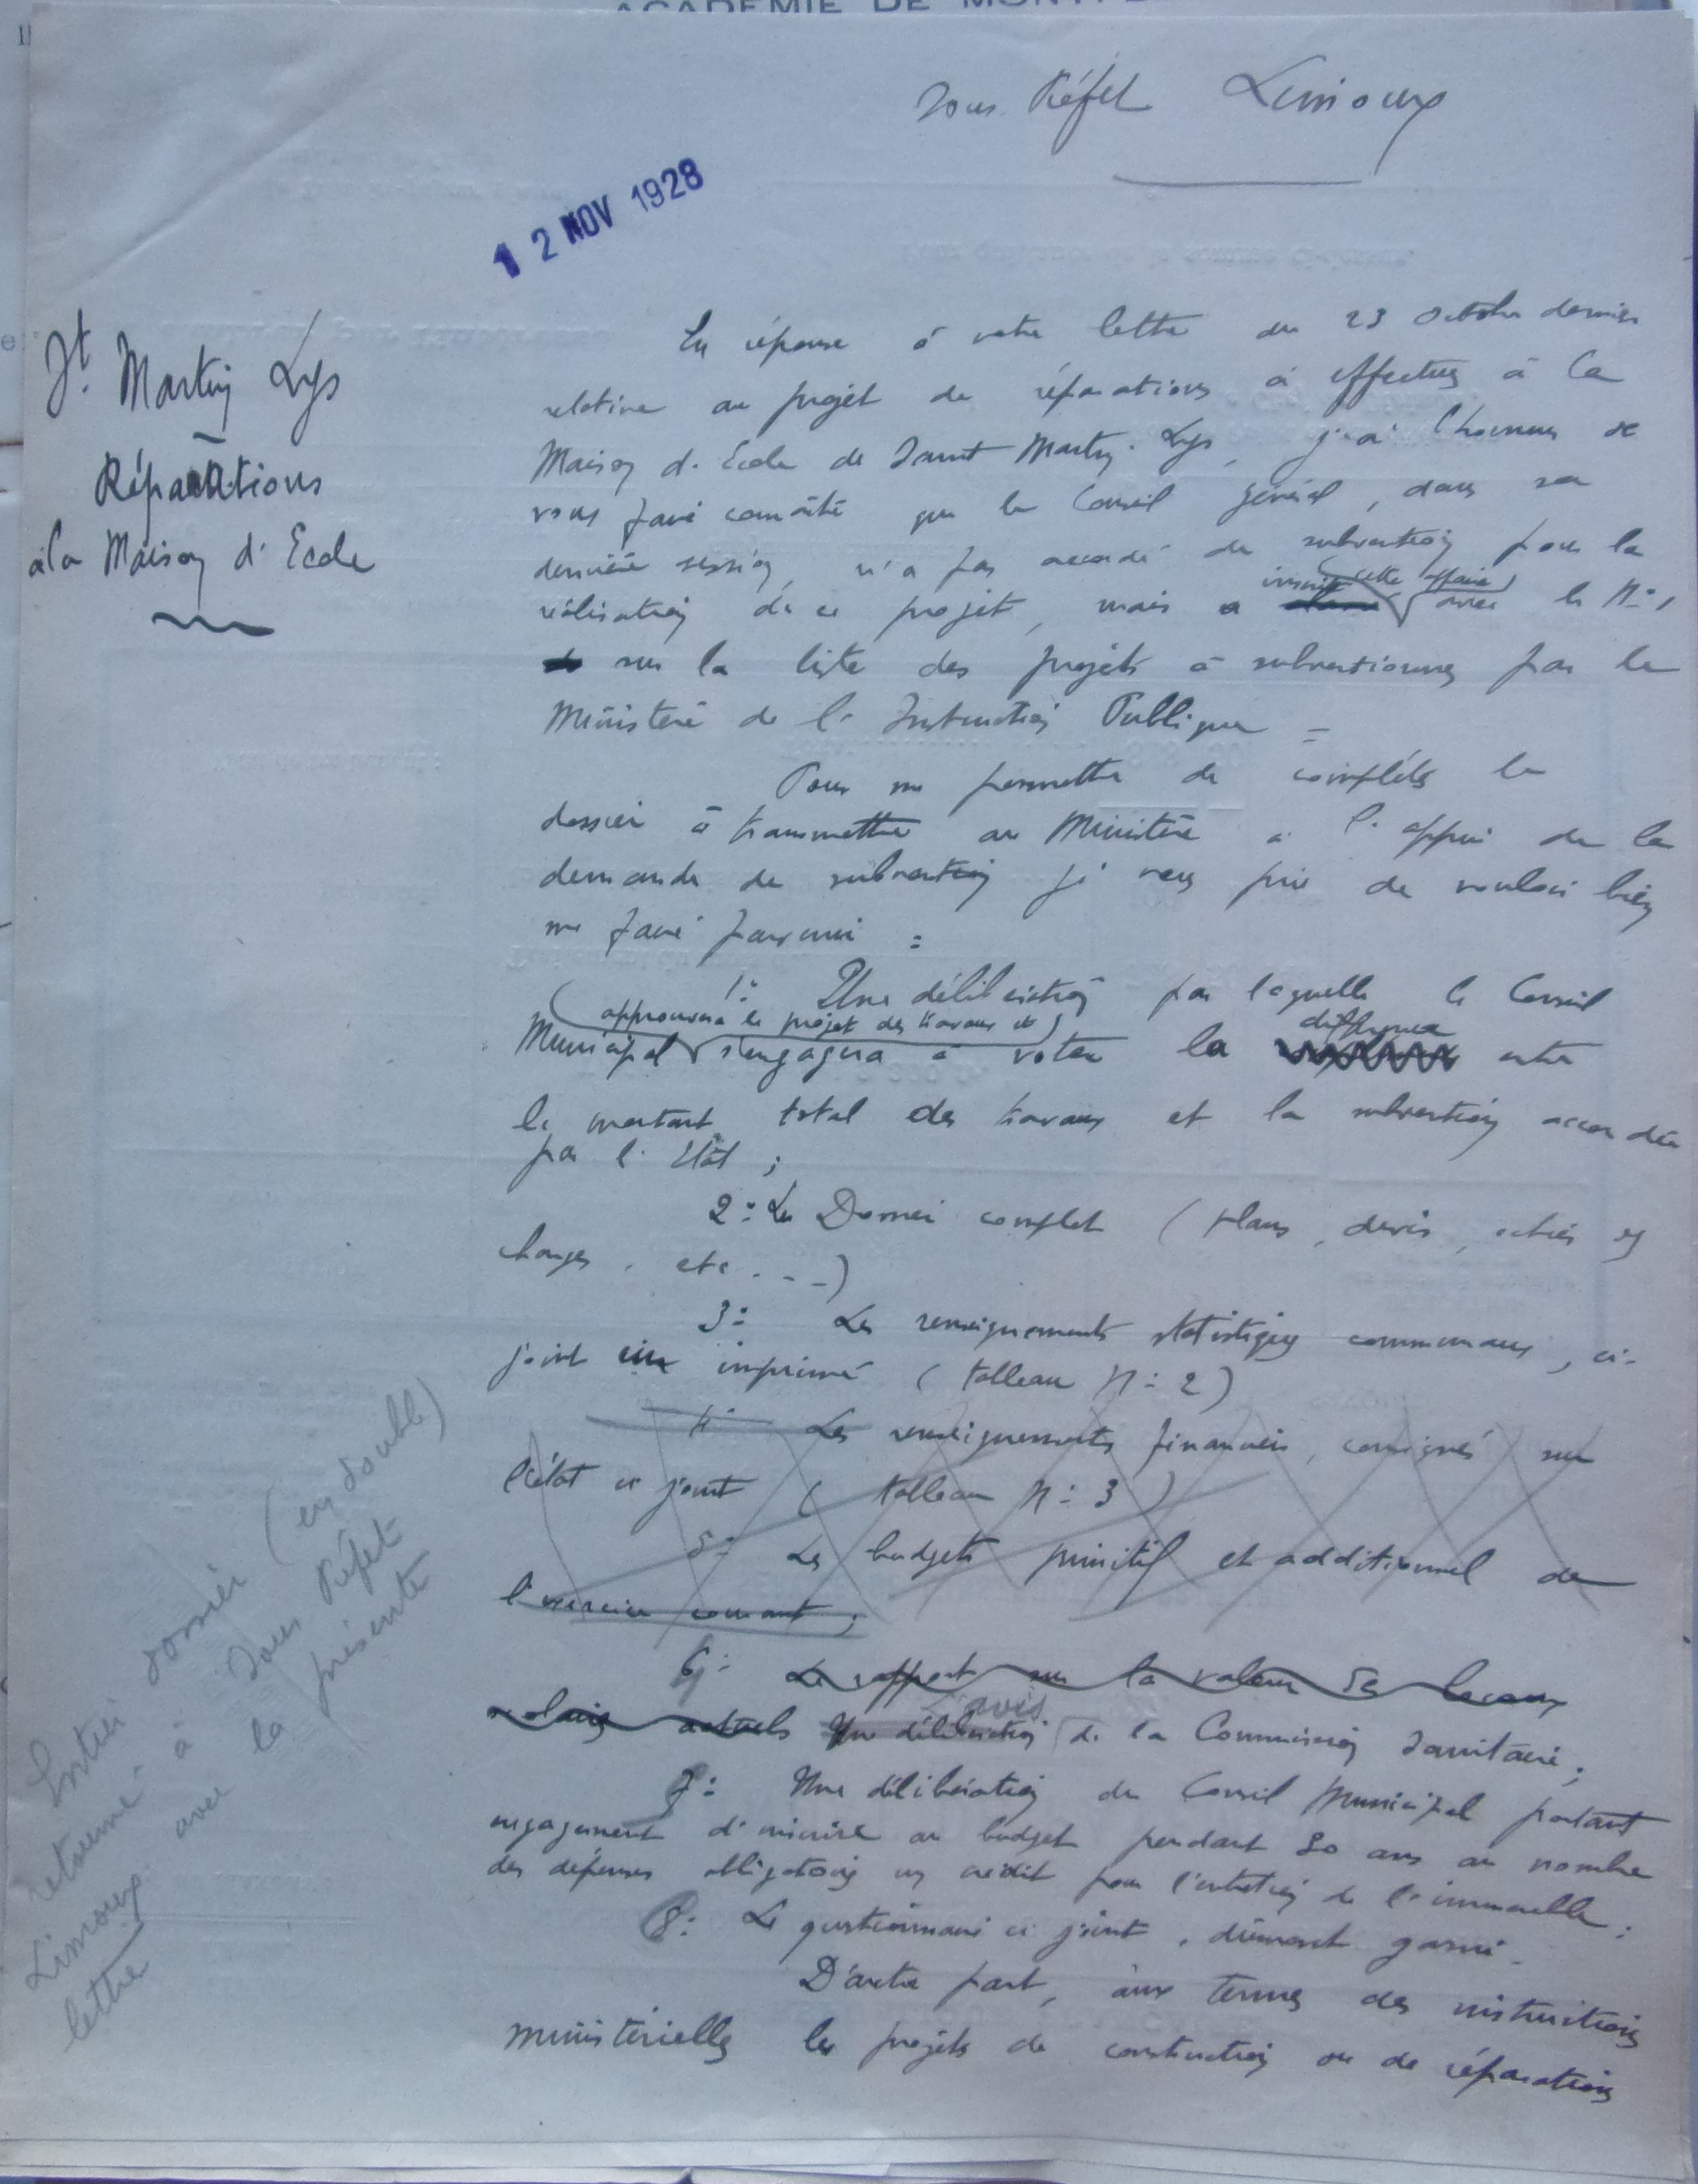 ACADEMIE DE
Sous-Préfet Limoux
12 NOV 1928
St. Martin Lys
Réparations
à la Maison d'Ecole
En réponse à votre lettre du 23 Octobre dernier
relative au projet de réparations à effectuer à la
Maison d'Ecole de Saint Martin-Lys, j'ai l'honneur de
vous faire connaître que le Conseil Général, dans sa
dernière session, n'a pas accordé de subvention pour la
inscrit cette affaire
réalisation de ce projet, mais a avec le N° 1
sur la liste des projets à subventionner par le
Ministère de l'Instruction Publique =
Pour me permettre de compléter le
dossier à transmettre au Ministère à l'appui de la
demande de subvention je vous prie de vouloir bien
me faire parvenir :
1° Une délibération par laquelle le Conseil
approuvera le projet des travaux et
différence
Municipal s'engagera à voter la entre
le montant total des travaux et la subvention accordée
par l'Etat ;
2° Le Dossier complet (plans, devis, cahier des
charges, etc...)
3° Les renseignements statistiques communaux, ci-
joint imprimé (tableau N° 2)
4° Les renseignements financiers, consignés sur
l'état ci joint (tableau N° 3)
5° Les budgets primitif et additionnel de
l'exercice courant ;
6° Le rapport sur la valeur des locaux
avis
scolaires actuels Une délibération de la Commission Sanitaire ;
7° Une délibération du Conseil Municipal portant
engagement d'inscrire au budget pendant 30 ans au nombre
des dépenses obligatoires un crédit pour l'entretien de l'immeuble ;
8° Le questionnaire ci joint, dûment garni.
D'autre part, aux termes des instructions
ministérielles les projets de construction ou de réparations
Entier dossier (en double)
retourné à Sous Préfet
Limoux avec la présente
lettre